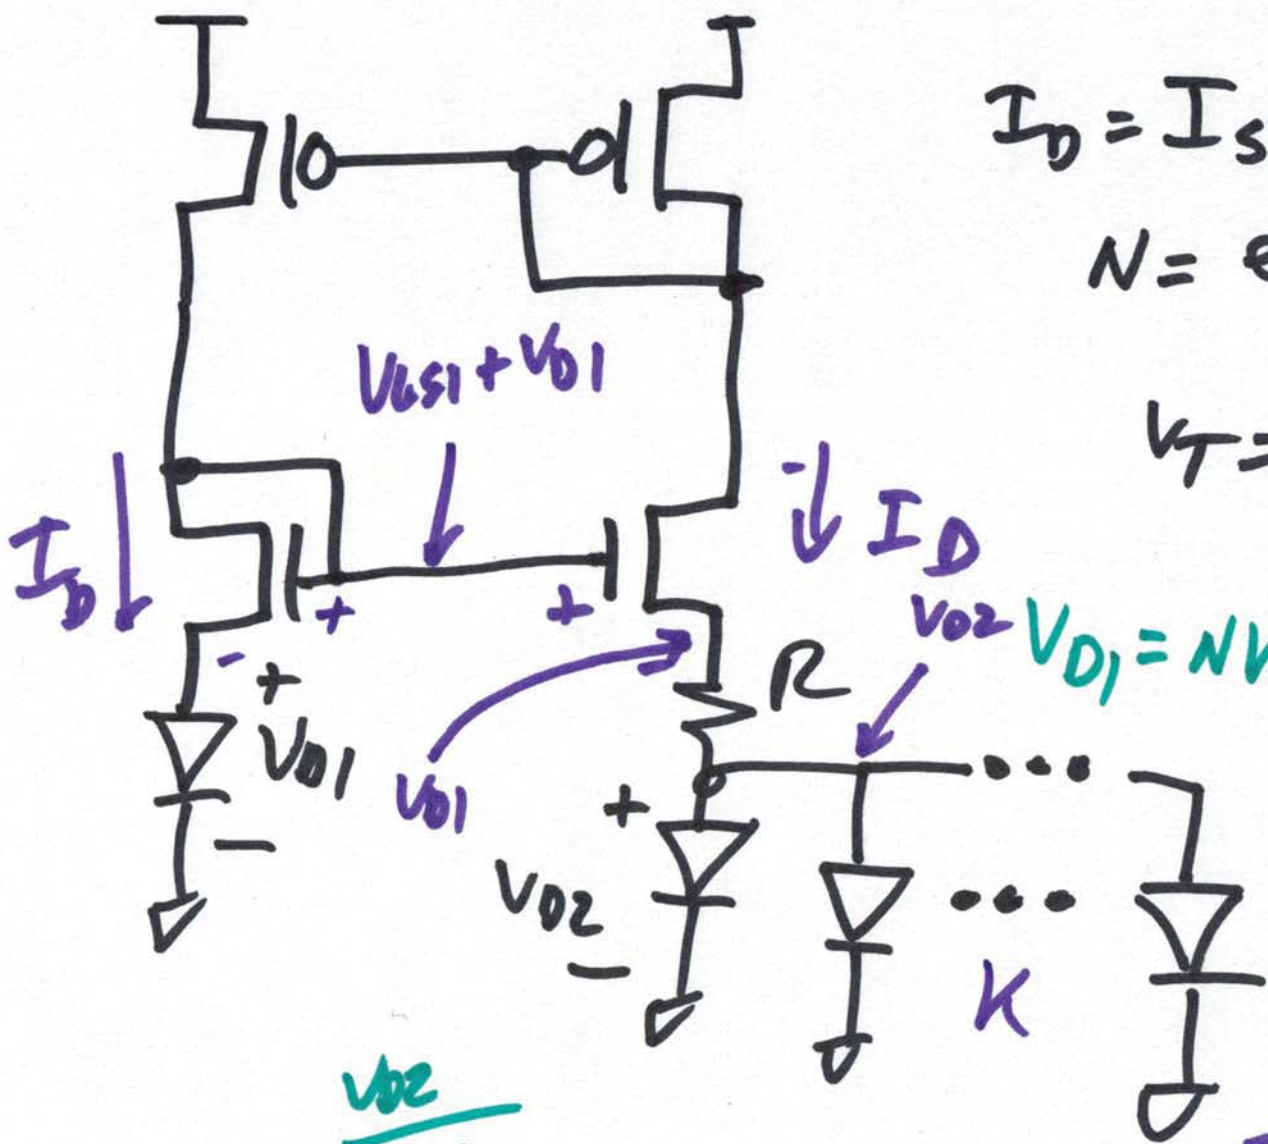 I_D = I_S
N =
V_T =
V_GS1 + V_D1
I_D
I_D
+
+
-
V_D2
V_D1 = NV
R
+
V_D1
-
V_D1
+
V_D2
-
K
V_D2